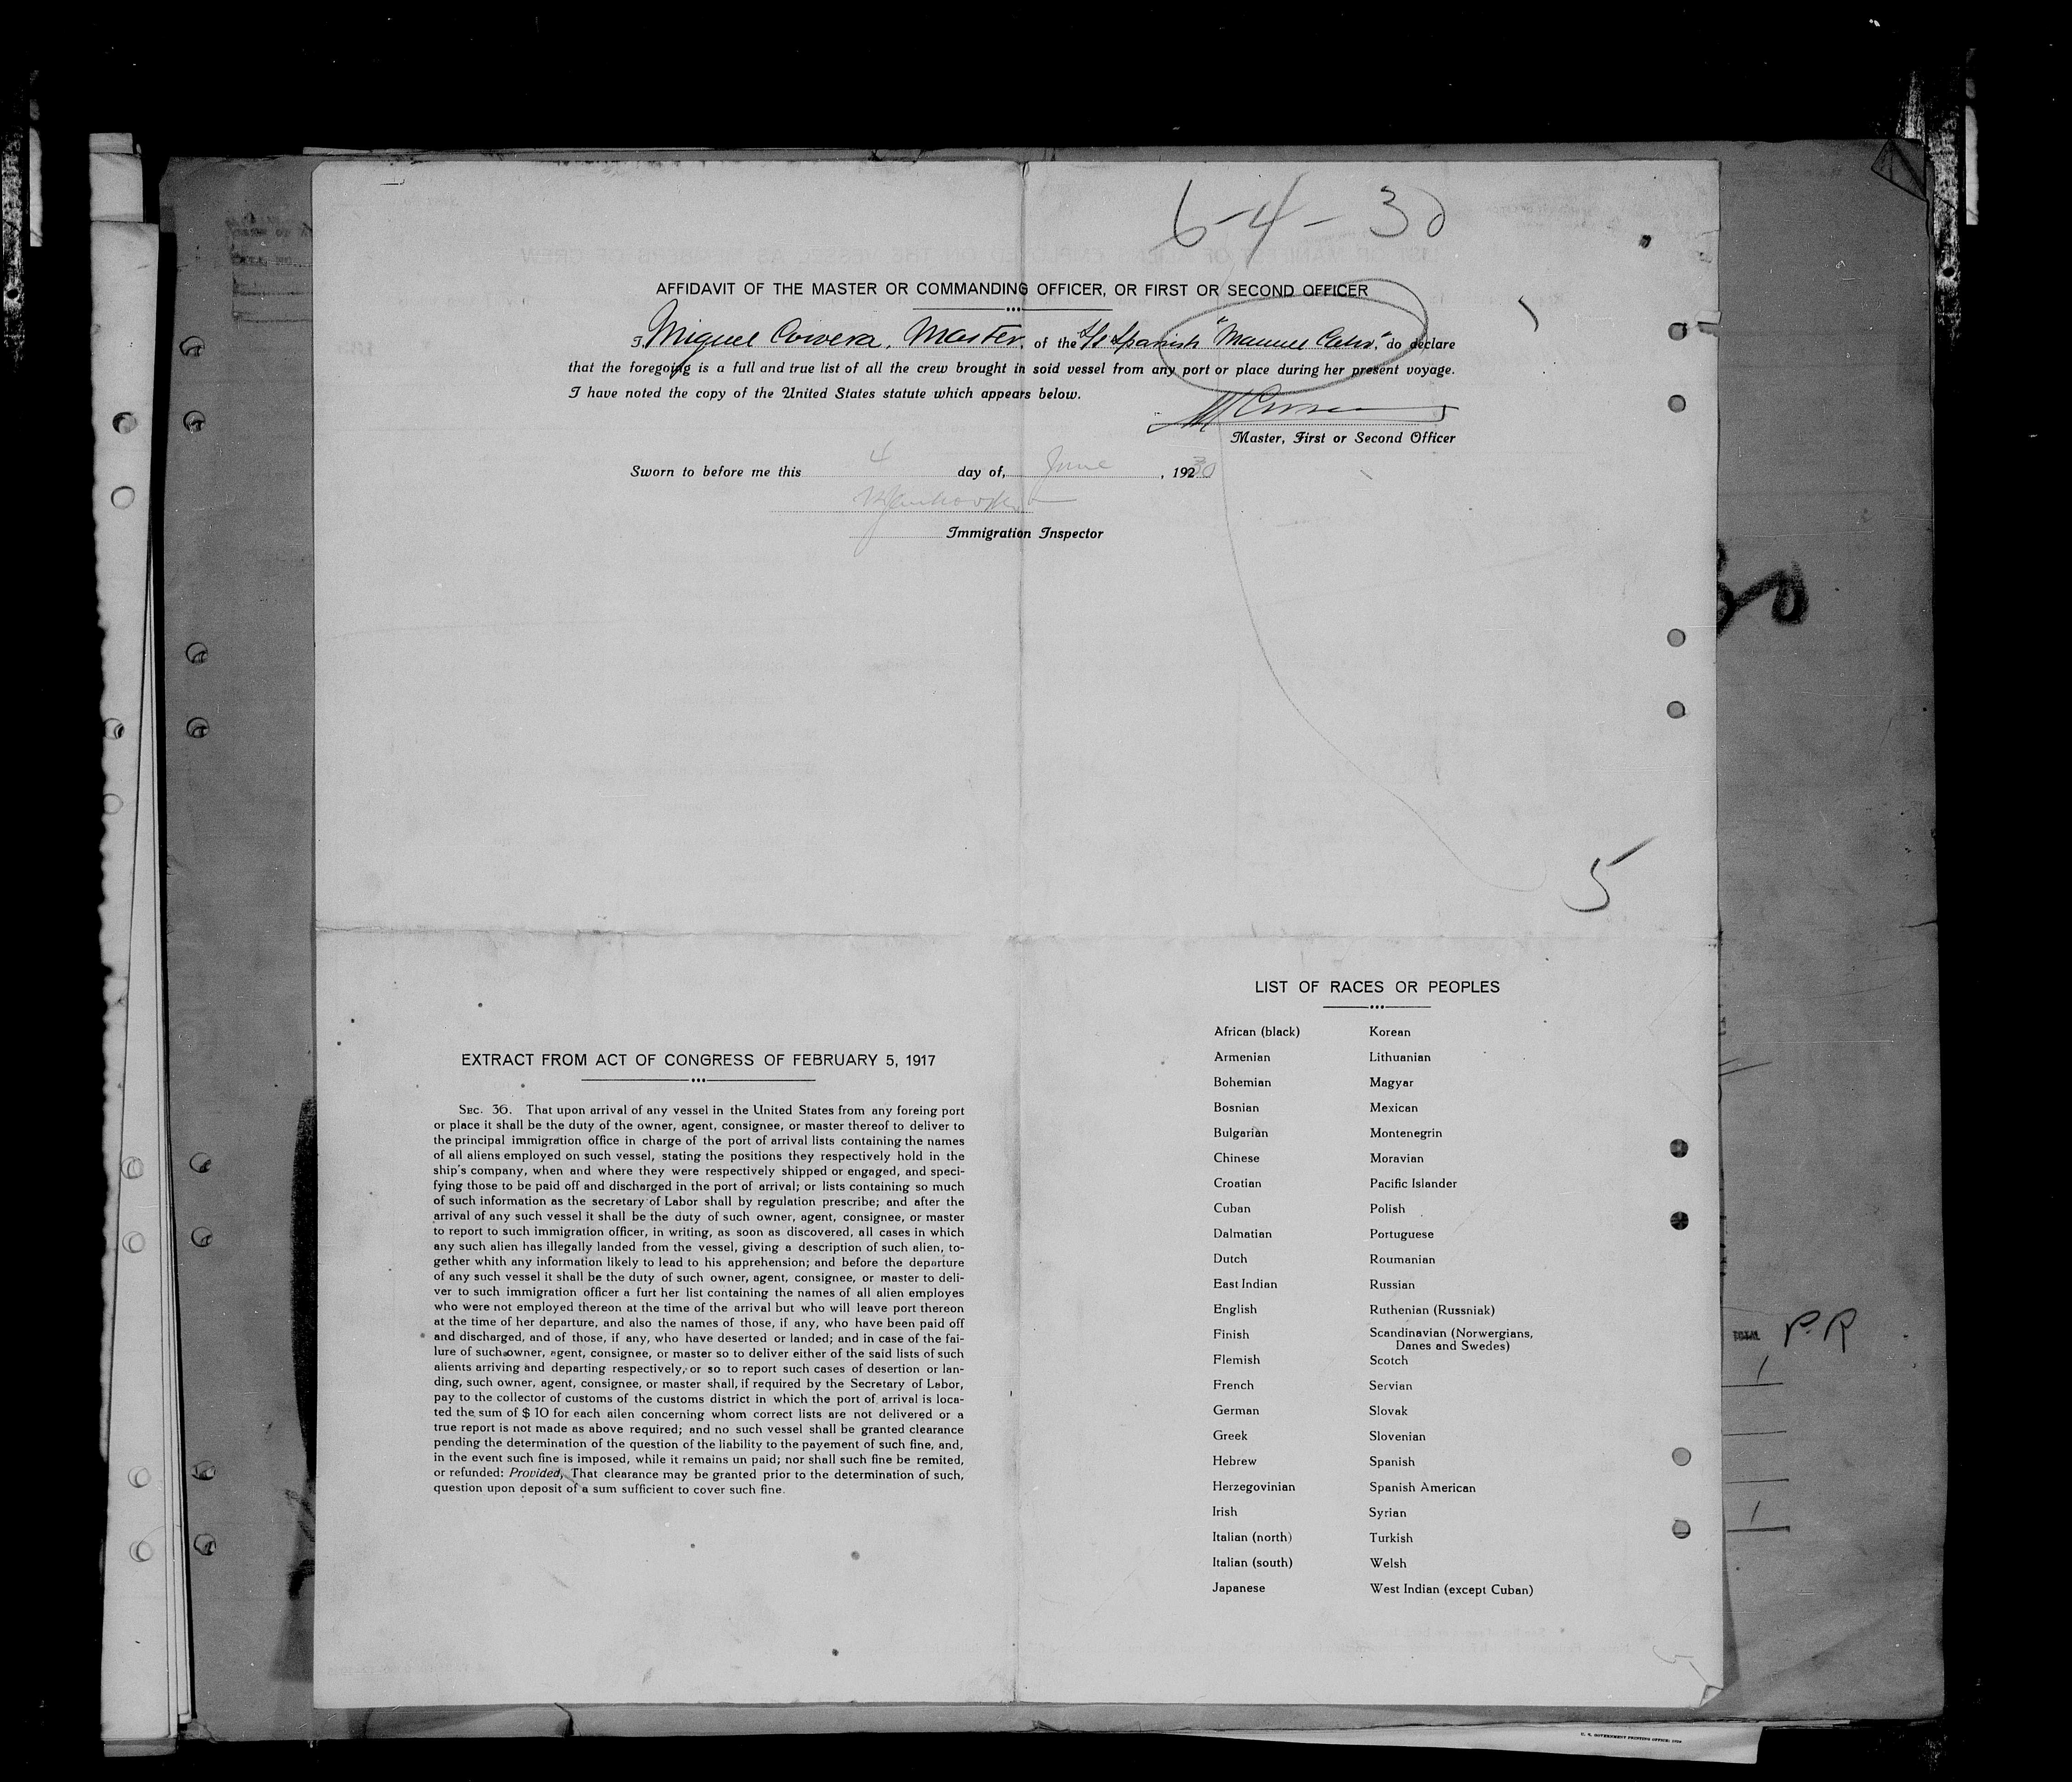 6-4-30
AFFIDAVIT OF THE MASTER OR COMMANDING OFFICER, OR FIRST OR SECOND OFFICER
I, Miguel Corvera, Master, of the S/s Spanish "Manuel Calvo," do declare
that the foregoing is a full and true list of all the crew brought in soid vessel from any port or place during her present voyage.
I have noted the copy of the United States statute which appears below.
Master, First or Second Officer
Sworn to before me this 4 day of, June, 1930
Immigration Inspector
30
5
EXTRACT FROM ACT OF CONGRESS OF FEBRUARY 5, 1917
SEC. 36. That upon arrival of any vessel in the United States from any foreing port
or place it shall be the duty of the owner, agent, consignee, or master thereof to deliver to
the principal immigration office in charge of the port of arrival lists containing the names
of all aliens employed on such vessel, stating the positions they respectively hold in the
ship's company, when and where they were respectively shipped or engaged, and speci-
fying those to be paid off and discharged in the port of arrival; or lists containing so much
of such information as the secretary of Labor shall by regulation prescribe; and after the
arrival of any such vessel it shall be the duty of such owner, agent, consignee, or master
to report to such immigration officer, in writing, as soon as discovered, all cases in which
any such alien has illegally landed from the vessel, giving a description of such alien, to-
gether whith any information likely to lead to his apprehension; and before the departure
of any such vessel it shall be the duty of such owner, agent, consignee, or master to deli-
ver to such immigration officer a furt her list containing the names of all alien employes
who were not employed thereon at the time of the arrival but who will leave port thereon
at the time of her departure, and also the names of those, if any, who have been paid off
and discharged, and of those, if any, who have deserted or landed; and in case of the fai-
lure of such owner, agent, consignee, or master so to deliver either of the said lists of such
alients arriving and departing respectively, or so to report such cases of desertion or lan-
ding, such owner, agent, consignee, or master shall, if required by the Secretary of Labor,
pay to the collector of customs of the customs district in which the port of arrival is loca-
ted the sum of $ 10 for each ailen concerning whom correct lists are not delivered or a
true report is not made as above required; and no such vessel shall be granted clearance
pending the determination of the question of the liability to the payement of such fine, and,
in the event such fine is imposed, while it remains un paid; nor shall such fine be remited,
or refunded: Provided, That clearance may be granted prior to the determination of such,
question upon deposit of a sum sufficient to cover such fine.
LIST OF RACES OR PEOPLES
African (black) Korean
Armenian Lithuanian
Bohemian Magyar
Bosnian Mexican
Bulgarian Montenegrin
Chinese Moravian
Croatian Pacific Islander
Cuban Polish
Dalmatian Portuguese
Dutch Roumanian
East Indian Russian
English Ruthenian (Russniak)
Finish Scandinavian (Norwergians,
Danes and Swedes)
Flemish Scotch
French Servian
German Slovak
Greek Slovenian
Hebrew Spanish
Herzegovinian Spanish American
Irish Syrian
Italian (north) Turkish
Italian (south) Welsh
Japanese West Indian (except Cuban)
TOTAL P.R
1
1